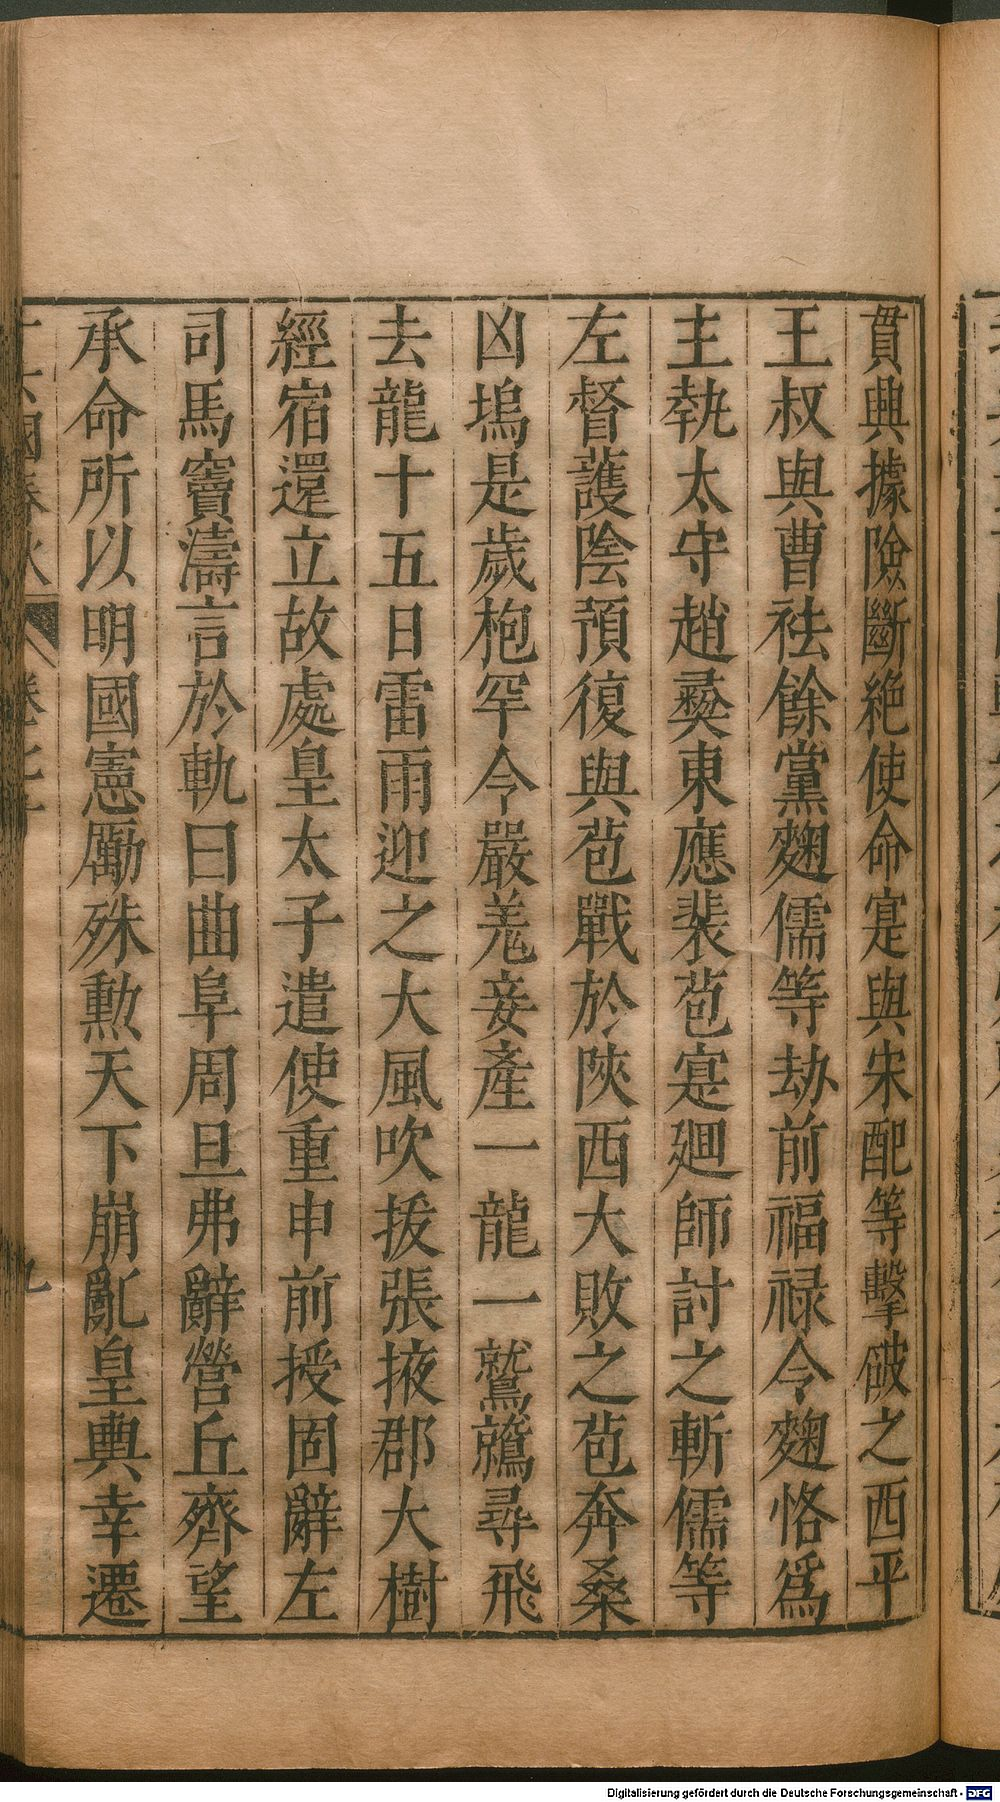 貫與據險斷絕使命寔與宋配等擊破之西平
王叔與曹祛餘黨麴儒等劫前福祿令麴恪爲
主執太守趙彝東應裴苞寔廻師討之斬儒等
左督護陰預復與苞戰於陝西大敗之苞奔桑
凶塢是歲枹罕令嚴羗妾產一龍一鷲鷲尋飛
去龍十五日雷雨迎之大風吹拔張掖郡大樹
經宿還立故處皇太子遣使重申前授固辭左
司馬竇濤言於軌曰曲阜周旦弗辭營丘齊望
承命所以明國憲厲殊勲天下崩亂皇輿幸遷
國春秋
九
Digitalisierung gefördert durch die Deutsche Forschungsgemeinschaft - DFG